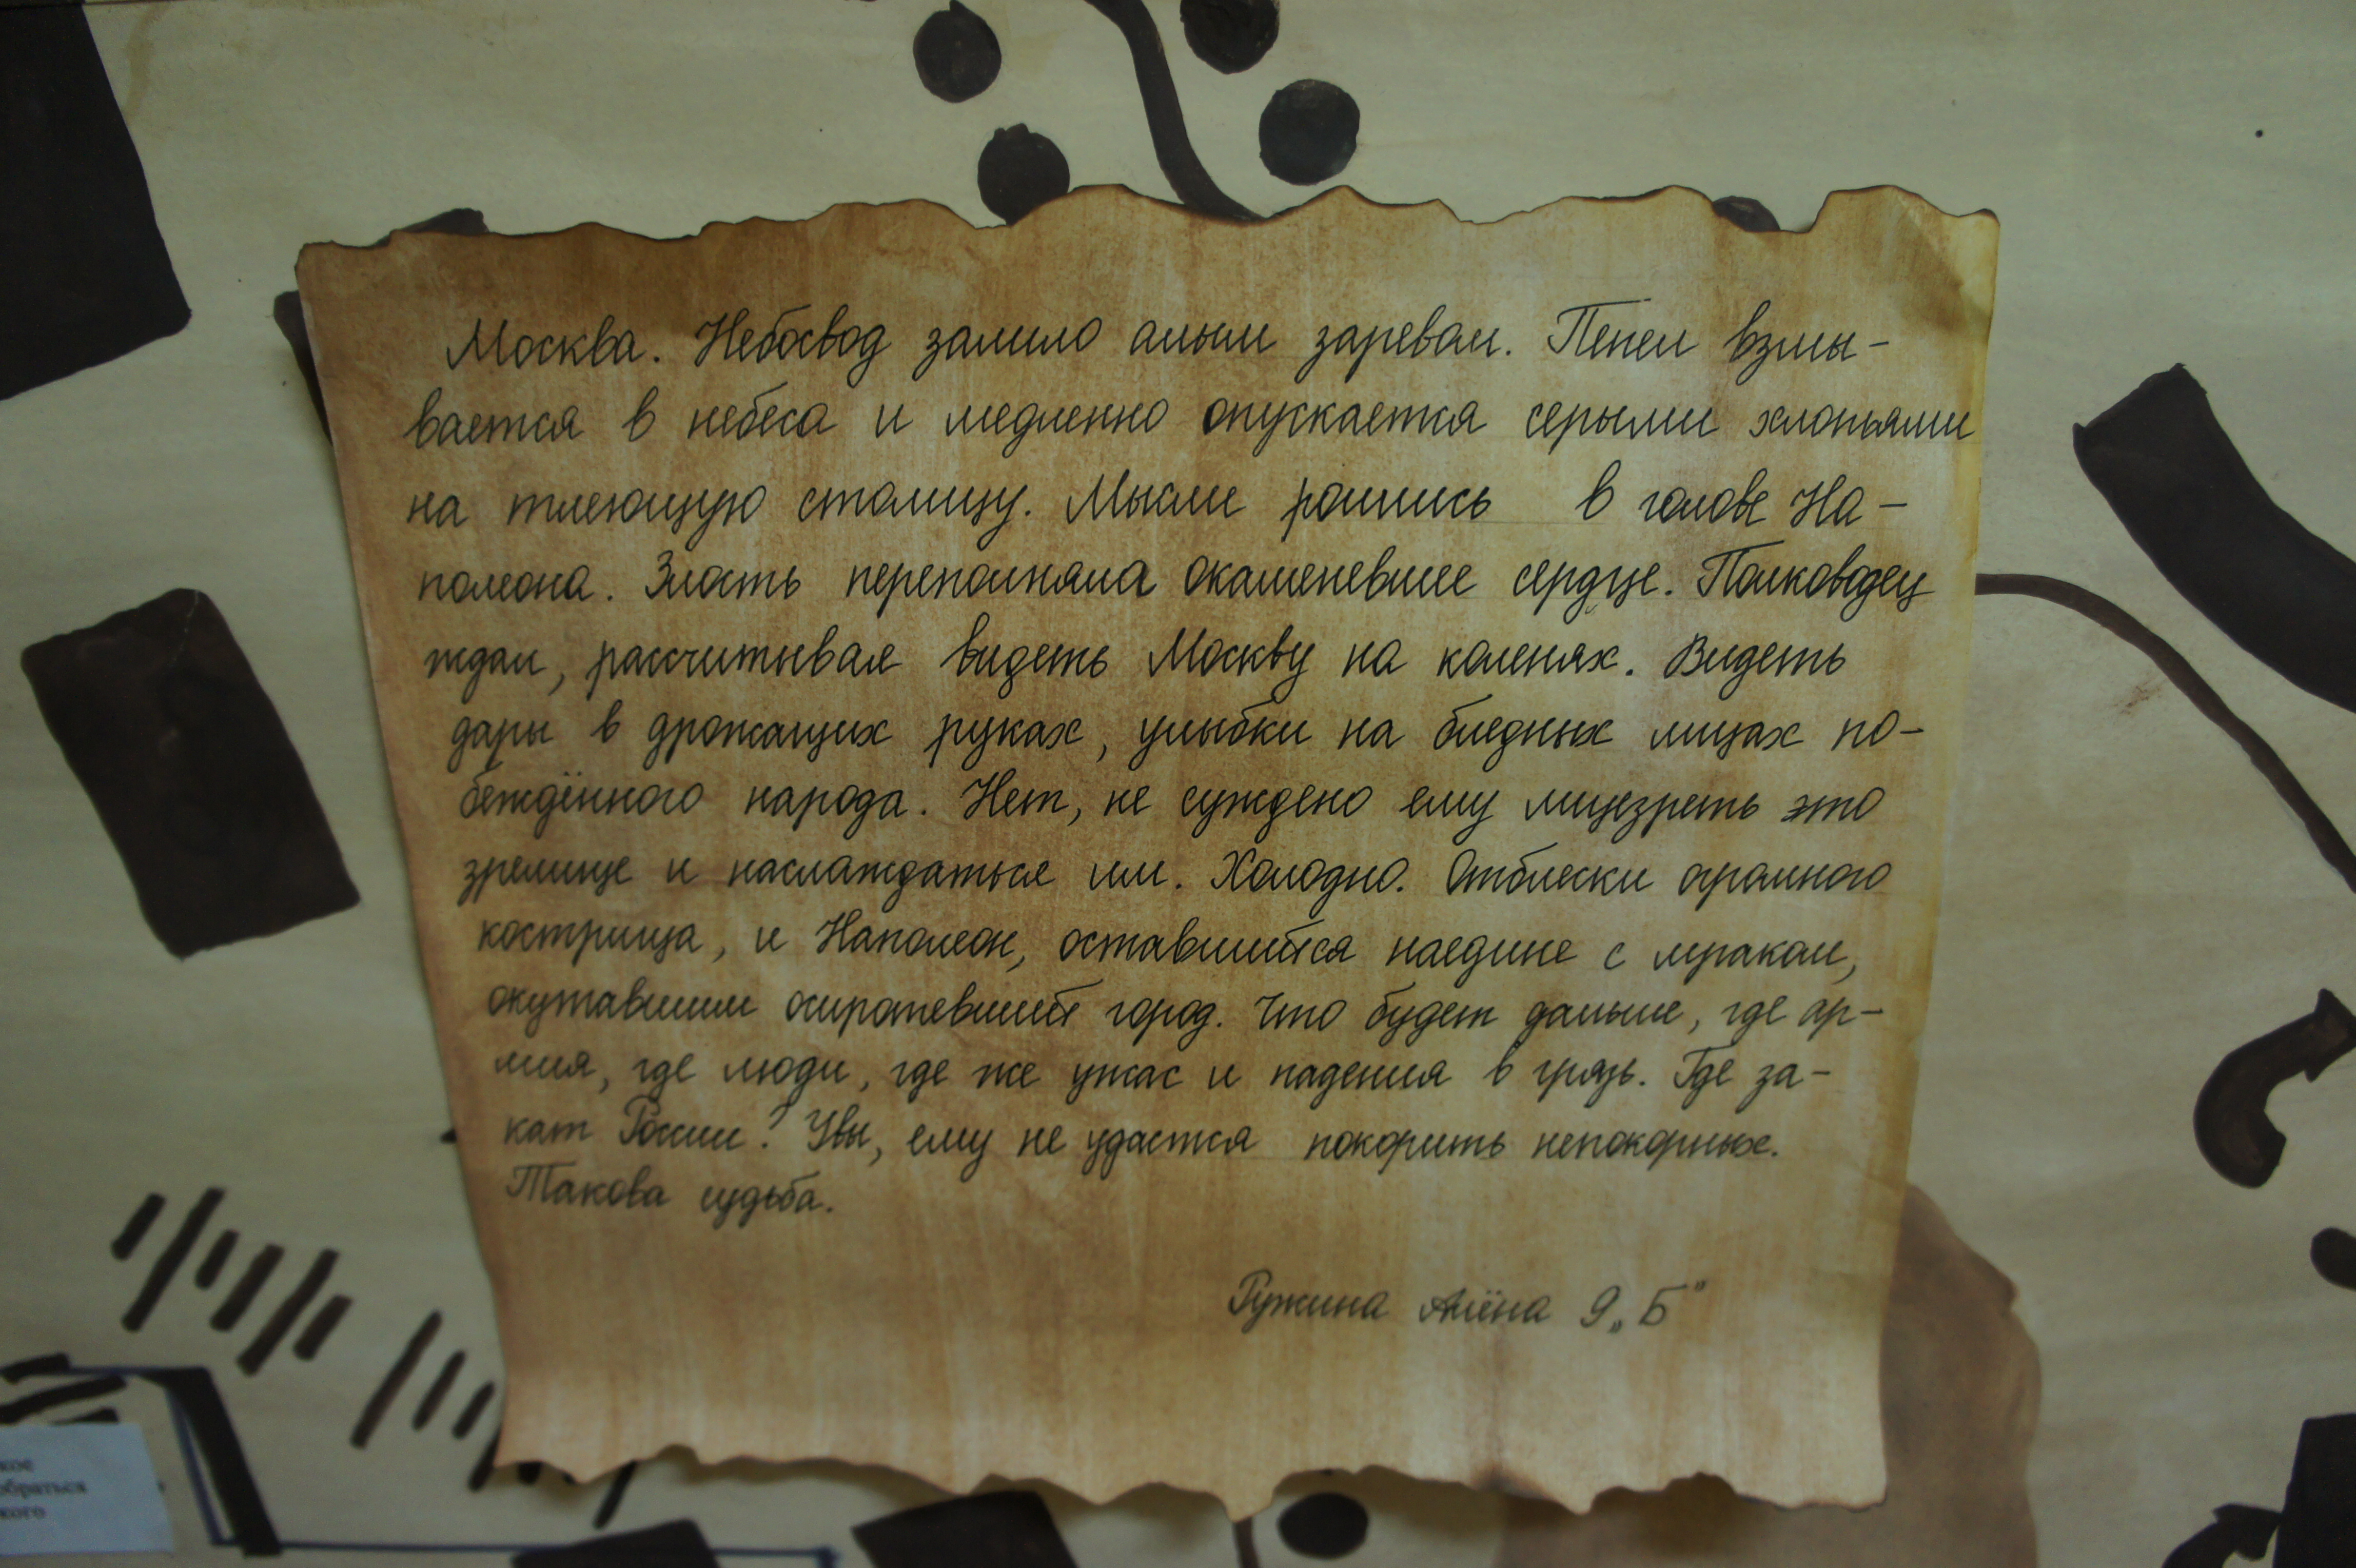 Москва. Небосвод залило алым заревом. Пепел взмы-
вается в небеса и медленно опускается серыми хлопьями
на тлеющую столицу. Мысли роились в голове На-
полеона. Злость переполняла окаменевшее сердце. Полководец
ждал, рассчитывая видеть Москву на коленях. Видеть
дары в дрожащих руках, улыбки на бледных лицах по-
беждённого народа. Нет, не суждено ему лицезреть это
зрелище и наслаждаться им. Холодно. Отблески огромного
кострища, и Наполеон, оставшийся наедине с мраком,
окутавшим осиротевший город. Что будет дальше, где ар-
мия, где люди, где же ужас и падения в грязь. Где за-
кат России? Увы, ему не удастся покорить непокорных.
Такова судьба.
Ружина Алёна 9 „Б"
кое
обраться
кого